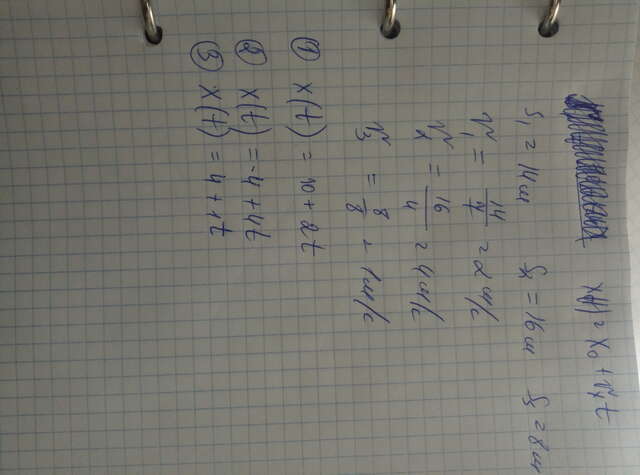 x(t) = x₀ + vₓt
S₁ = 14 м S₂ = 16 м S₃ = 8 м
v₁ = 14/7 = 2 м/с
v₂ = 16/4 = 4 м/с
v₃ = 8/8 = 1 м/с
① x(t) = 10 + 2t
② x(t) = -4 + 4t
③ x(t) = 4 + 1t